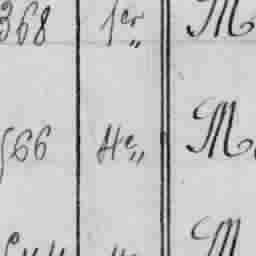 368 1er M
566 4e M